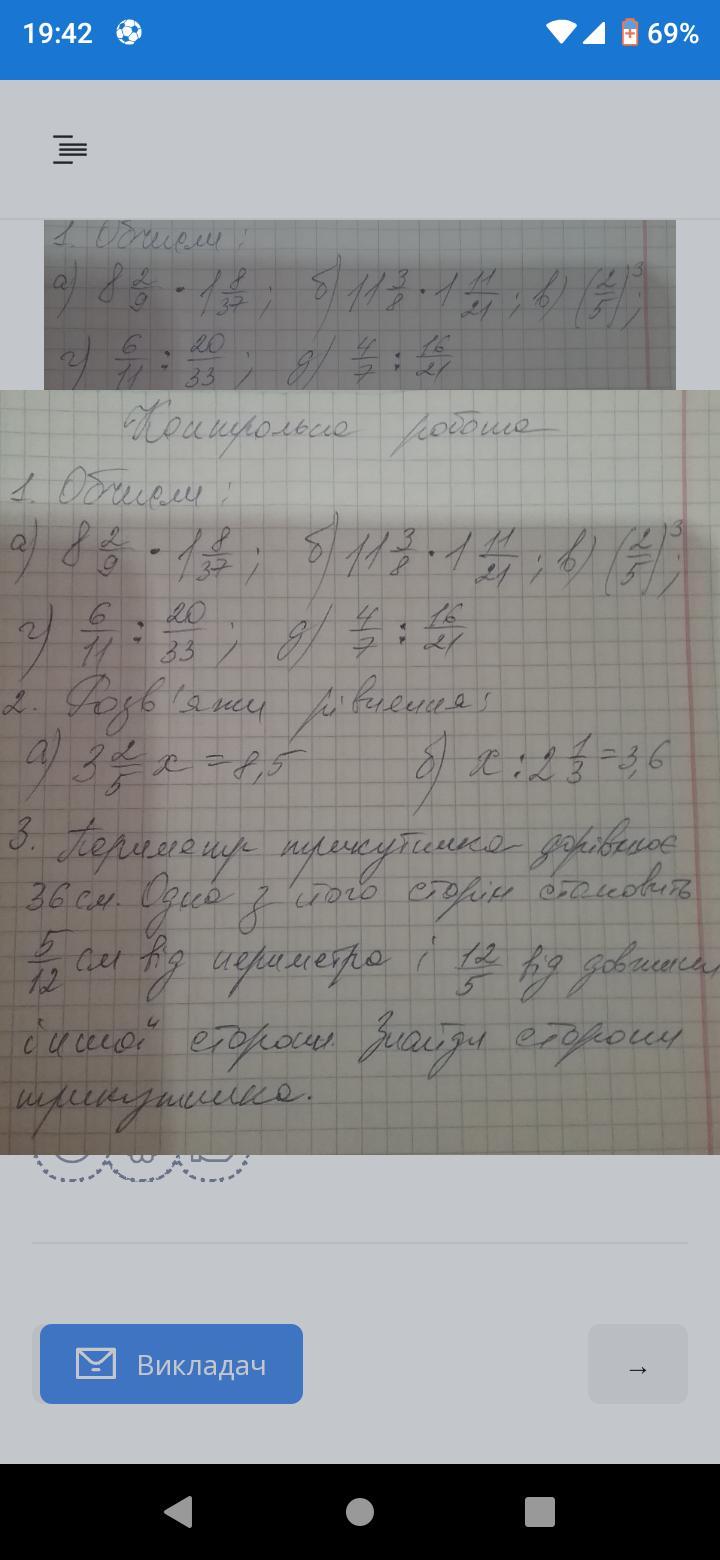 19:42 69%
1. Обчисли:
а) 8 2/9 · 1 8/37; б) 11 3/8 · 1 11/21; в) (2/5)³;
г) 6/11 : 20/33; д) 4/7 : 16/21
Контрольна робота
1. Обчисли:
а) 8 2/9 · 1 8/37; б) 11 3/8 · 1 11/21; в) (2/5)³;
г) 6/11 : 20/33; д) 4/7 : 16/21
2. Розв'яжи рівняння:
а) 3 2/5 x = 8,5 б) x : 2 1/3 = 3,6
3. Периметр трикутника дорівнює
36 см. Одна з його сторін становить
5/12 см від периметра і 12/5 від довжини
іншої сторони. Знайди сторони
трикутника.
Викладач →